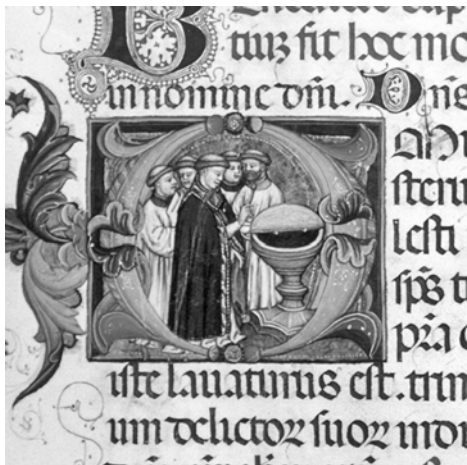 B
tur fit hoc mo
in nomine dñi. Dñs
steru
lesti
sp̃s t
p̃ra c
iste lauaturus est. trin
um delictoꝝ suoꝝ